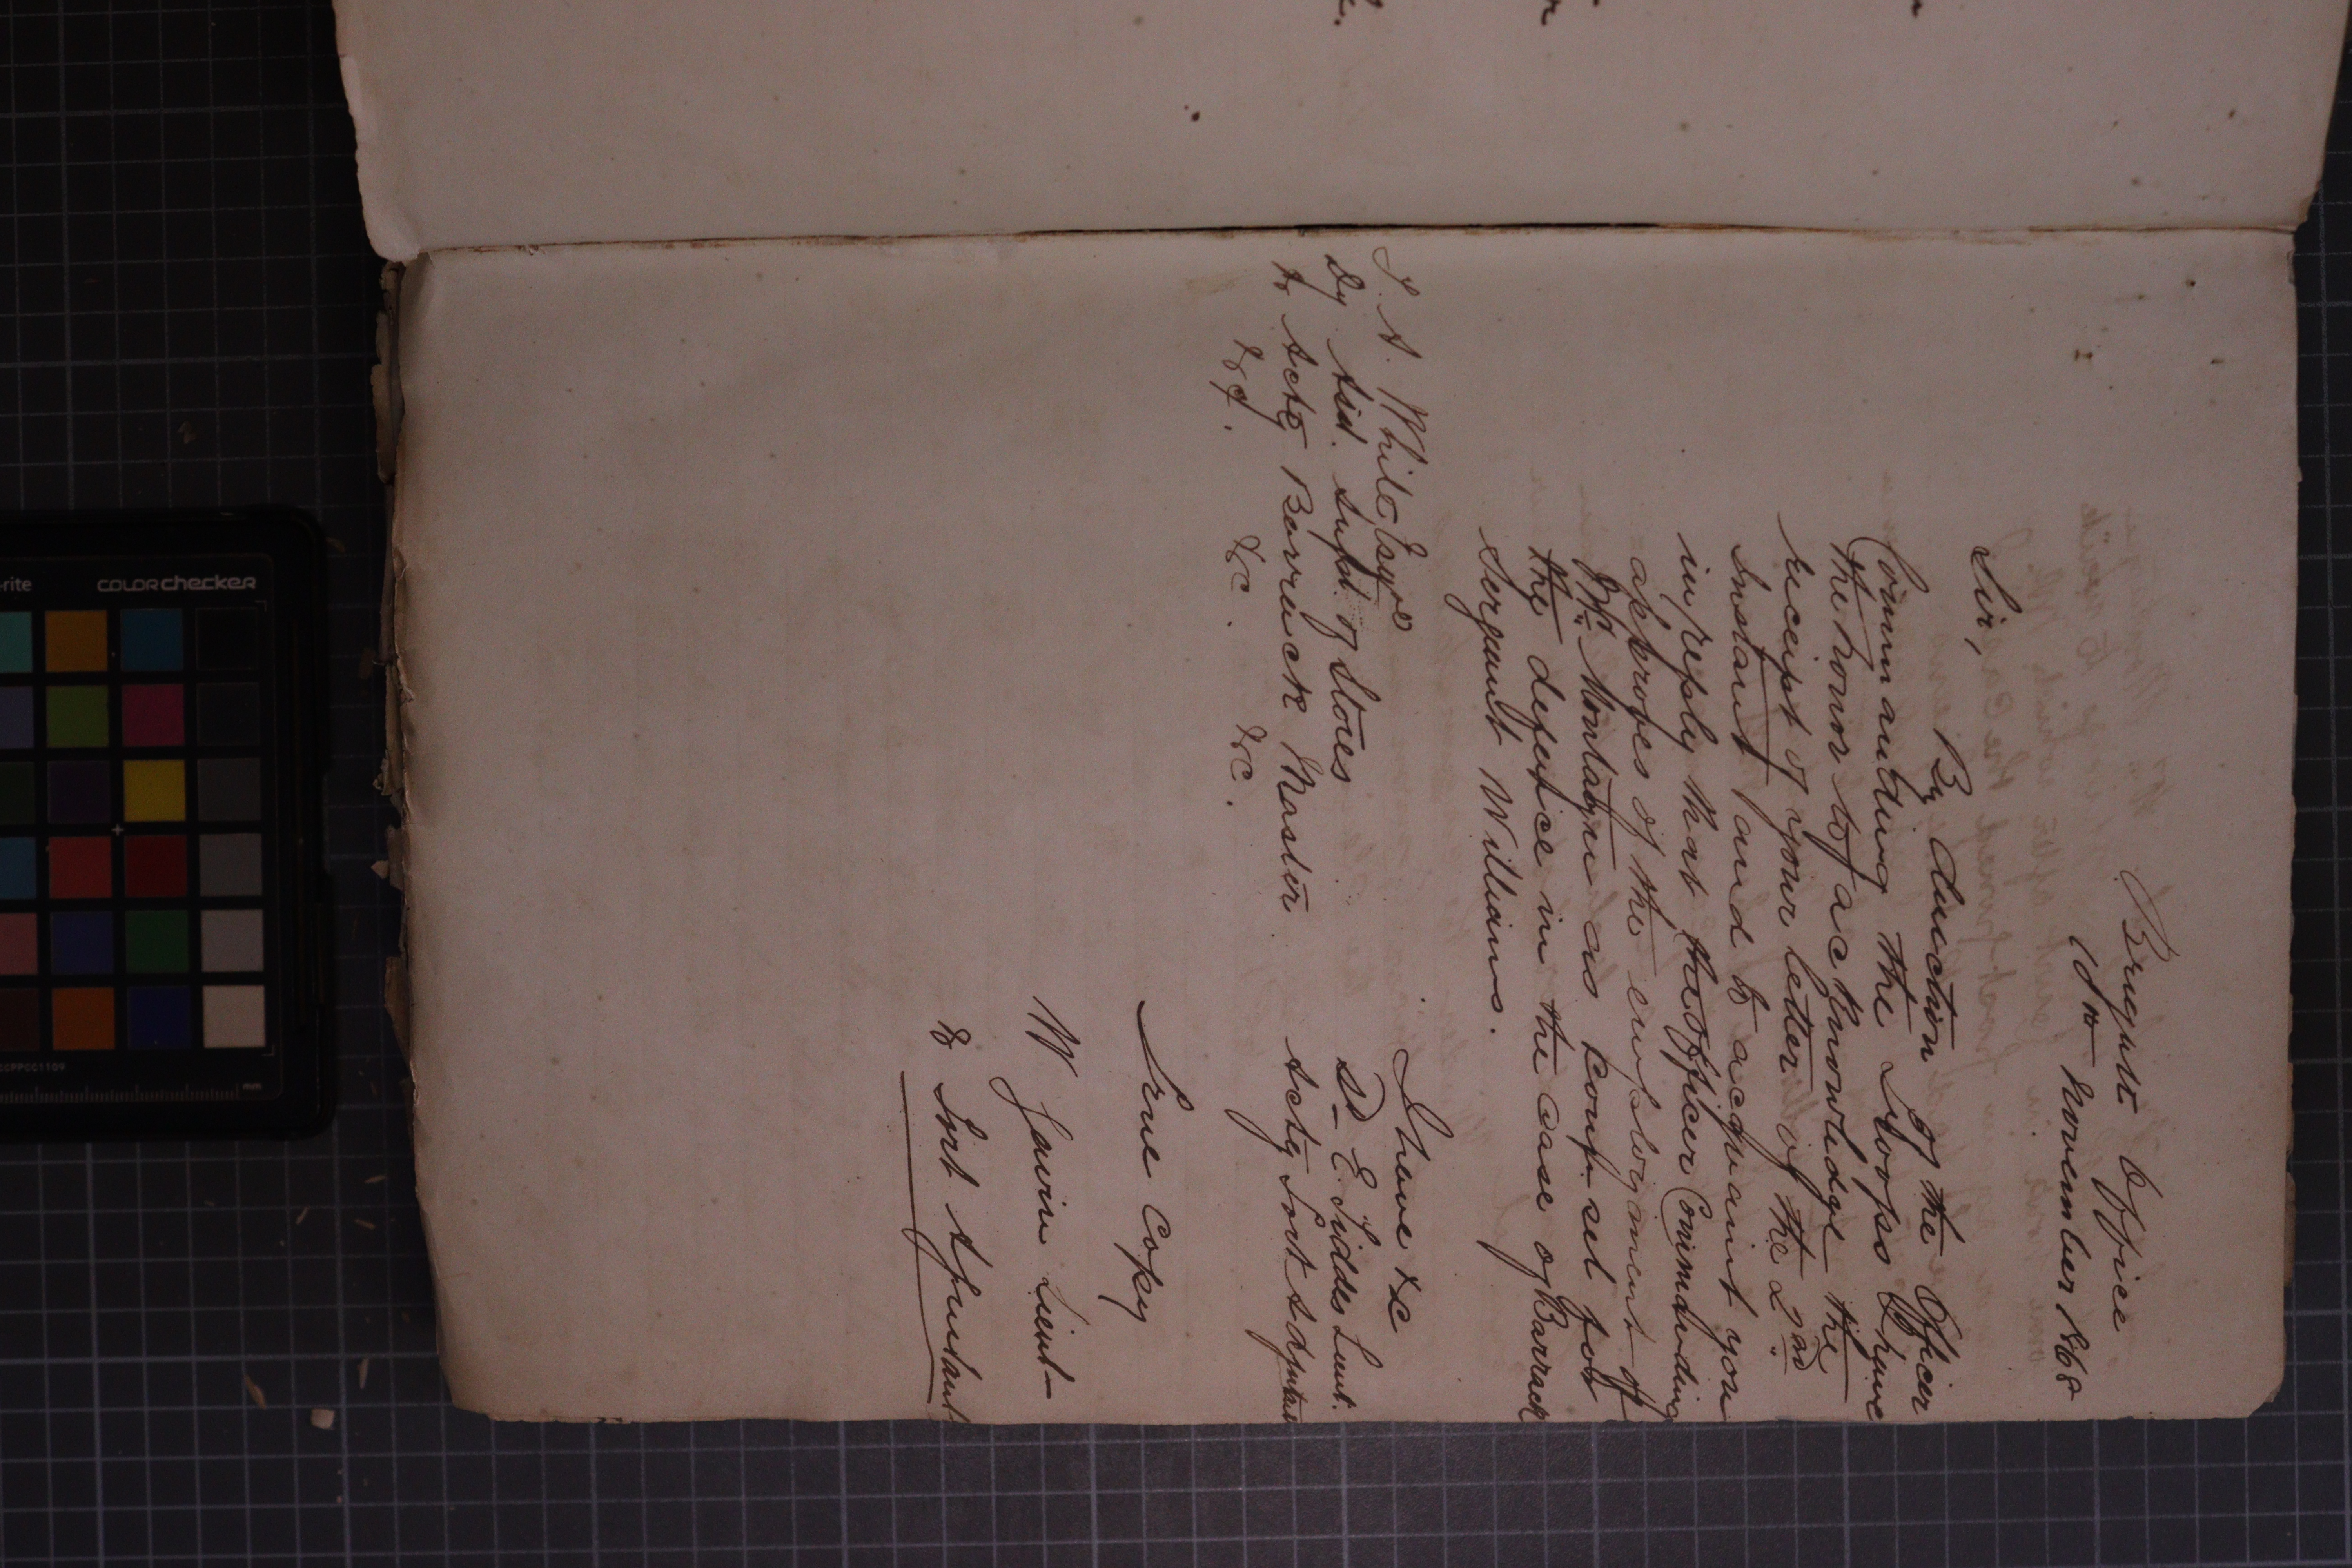 Brigade Office
10th November 1868
Sir,
By direction of the Officer
Commanding the Troops I have
the honor to acknowledge the
receipt of your letter of the 2nd
instant and to acquaint you
in reply that the Officer Commanding
approves of the employment of
Mr. Montague as Counsel for
the defence in the case of Barrack
Sergeant Williams.
I have &c
Sd E. Lidds Lieut.
Actg Fort Adjutant
T. A. White Esqre
Dy Asst. Supt. of Stores
& Actg Barrack Master
&c. &c. &c.
True Copy
W Gavin Lieut
& Fort Adjutant
colorchecker
mm